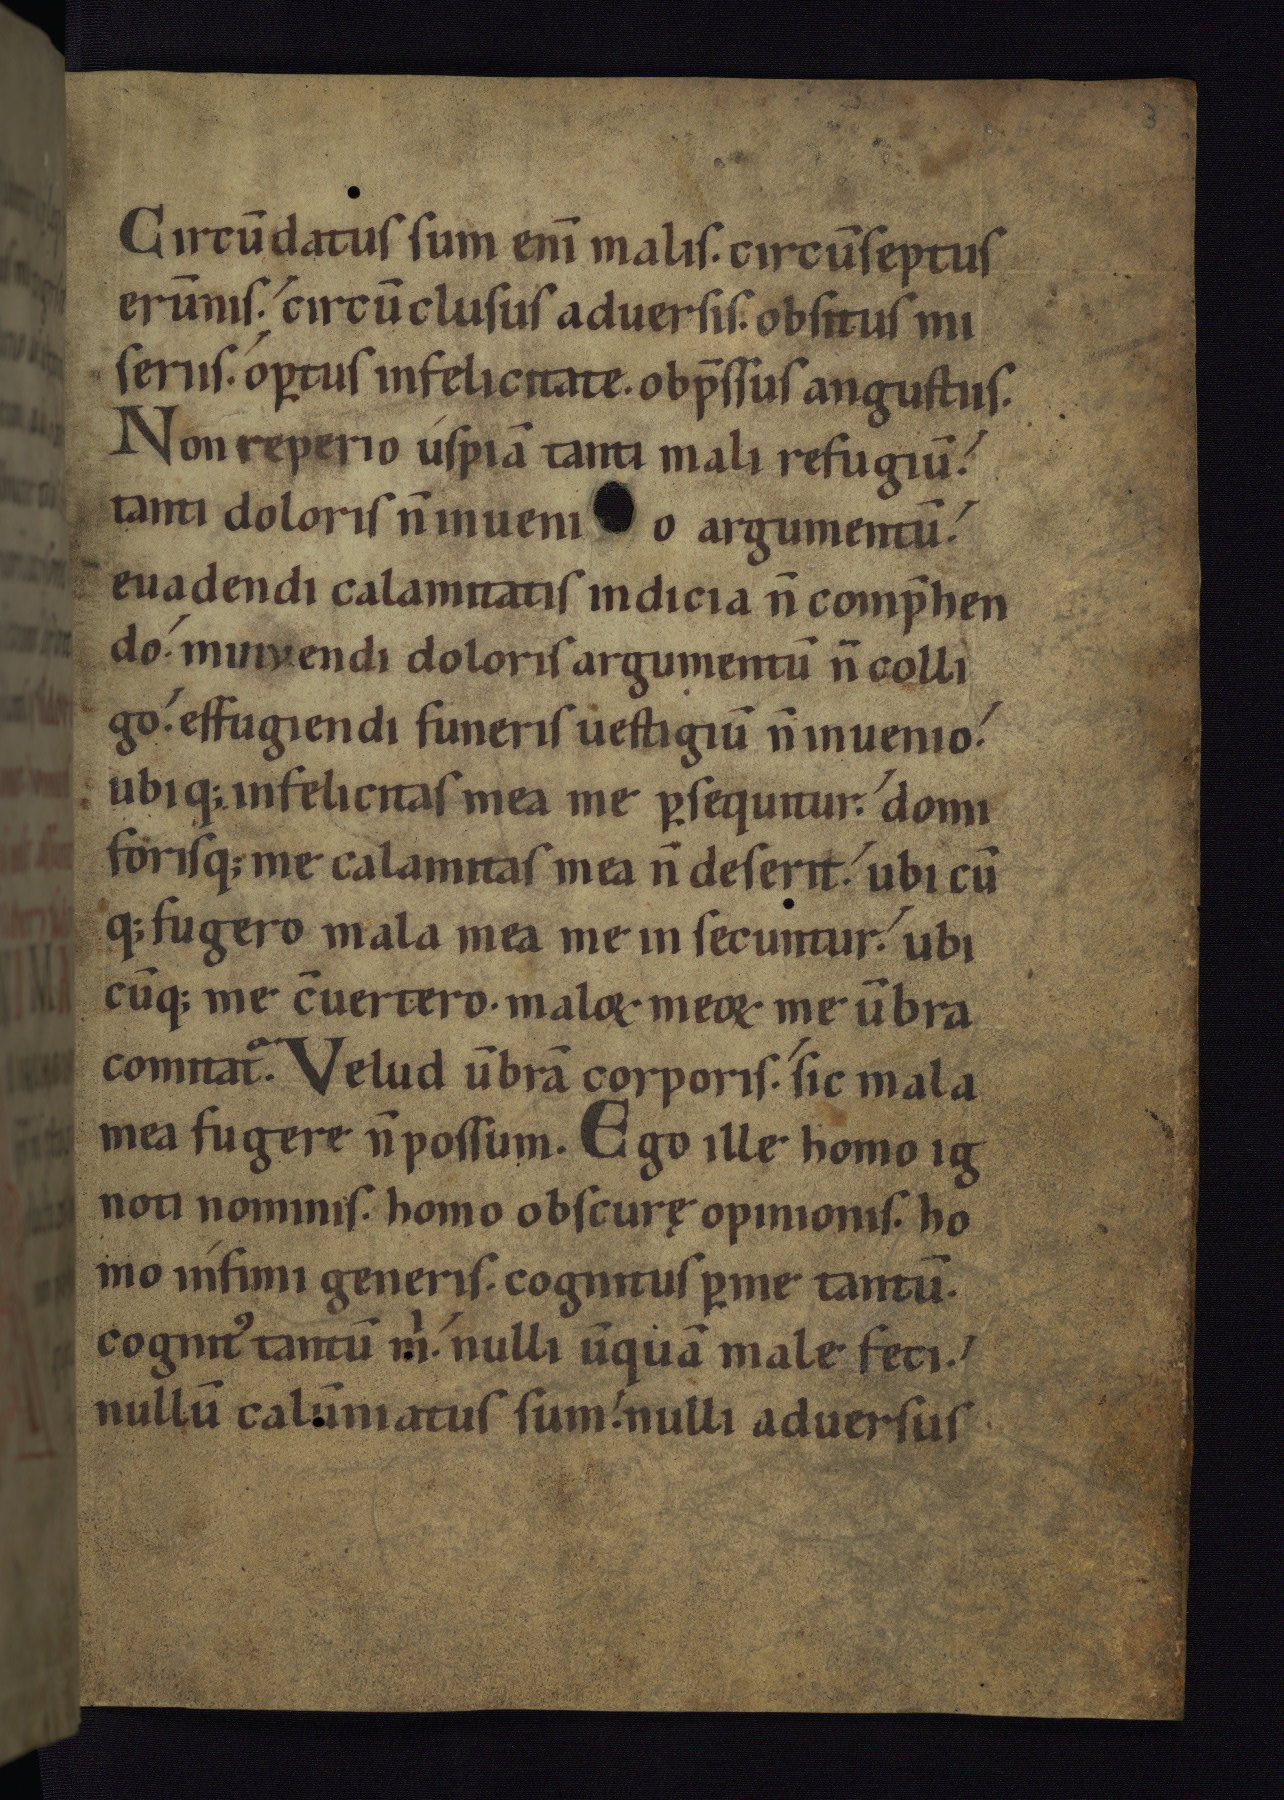 3
Circū datus sum enī malis. circū septus
erūnis. circū clusus aduersis. obsitus mi
seriis. opꝑtus infelicitate. obp̄ssus angustiis.
Non reperio uspiā tanti mali refugiū.
tanti doloris n̄ inueni o argumentū.
euadendi calamitatis indicia n̄ comp̄hen
do. minuendi doloris argumentū n̄ colli
go. effugiendi funeris uestigiū n̄ inuenio.
ubiq; infelicitas mea me ꝑsequitur. domi
forisq; me calamitas mea n̄ deserit. ubi cū
q; fugero mala mea me in secuntur. ubi
cūq; me c̄uertero. maloꝝ meoꝝ me ūbra
comitat᷑. Velud ūbrā corporis. sic mala
mea fugere n̄ possum. Ego ille homo ig
noti nominis. homo obscurę opinionis. ho
mo infimi generis. cognitus ꝑ me tantū.
cognitꝰ tantū m̍. nulli ūquā male feci.
nullū calūniatus sum. nulli aduersus